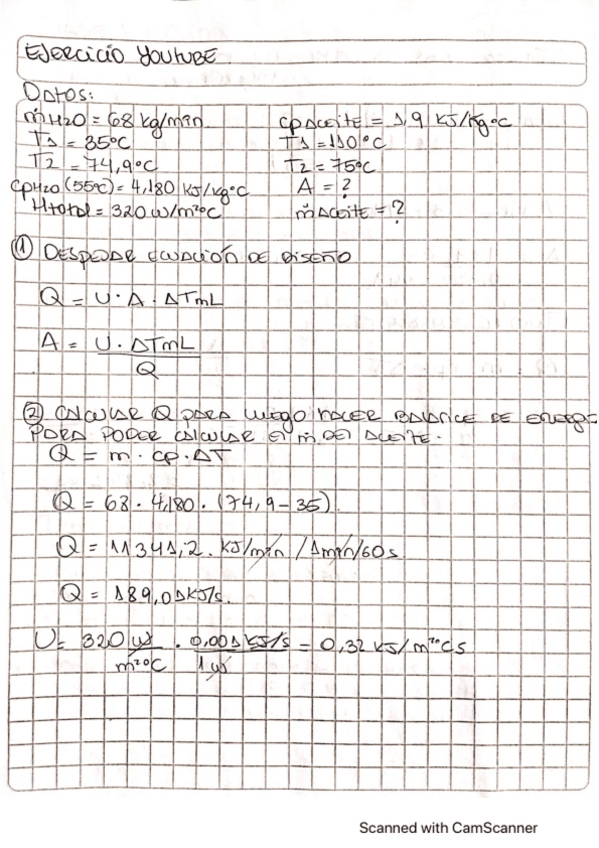 Ejercicio YouTube
Datos:
ṁ H2O = 68 kg/min
T1 = 35°C
T2 = 74,9°C
cpH2O (55°C) = 4,180 KJ/kg°C
Htotal = 320 w/m²°C
cp Aceite = 1,9 KJ/kg°C
T1 = 110°C
T2 = 75°C
A = ?
ṁ Aceite = ?
① Despejar ecuación de diseño
Q = U · A · ΔTmL
A = U · ΔTmL / Q
② Calcular Q para luego hacer balance de energí
para poder calcular el ṁ del aceite.
Q = m · cp · ΔT
Q = 68 · 4,180 · (74,9 - 35)
Q = 11341,2 · KJ/min / 1min/60s
Q = 189,01KJ/s.
U = 320 w/m²°C · 0,001 KJ/s / 1w = 0,32 KJ/m²°Cs
Scanned with CamScanner